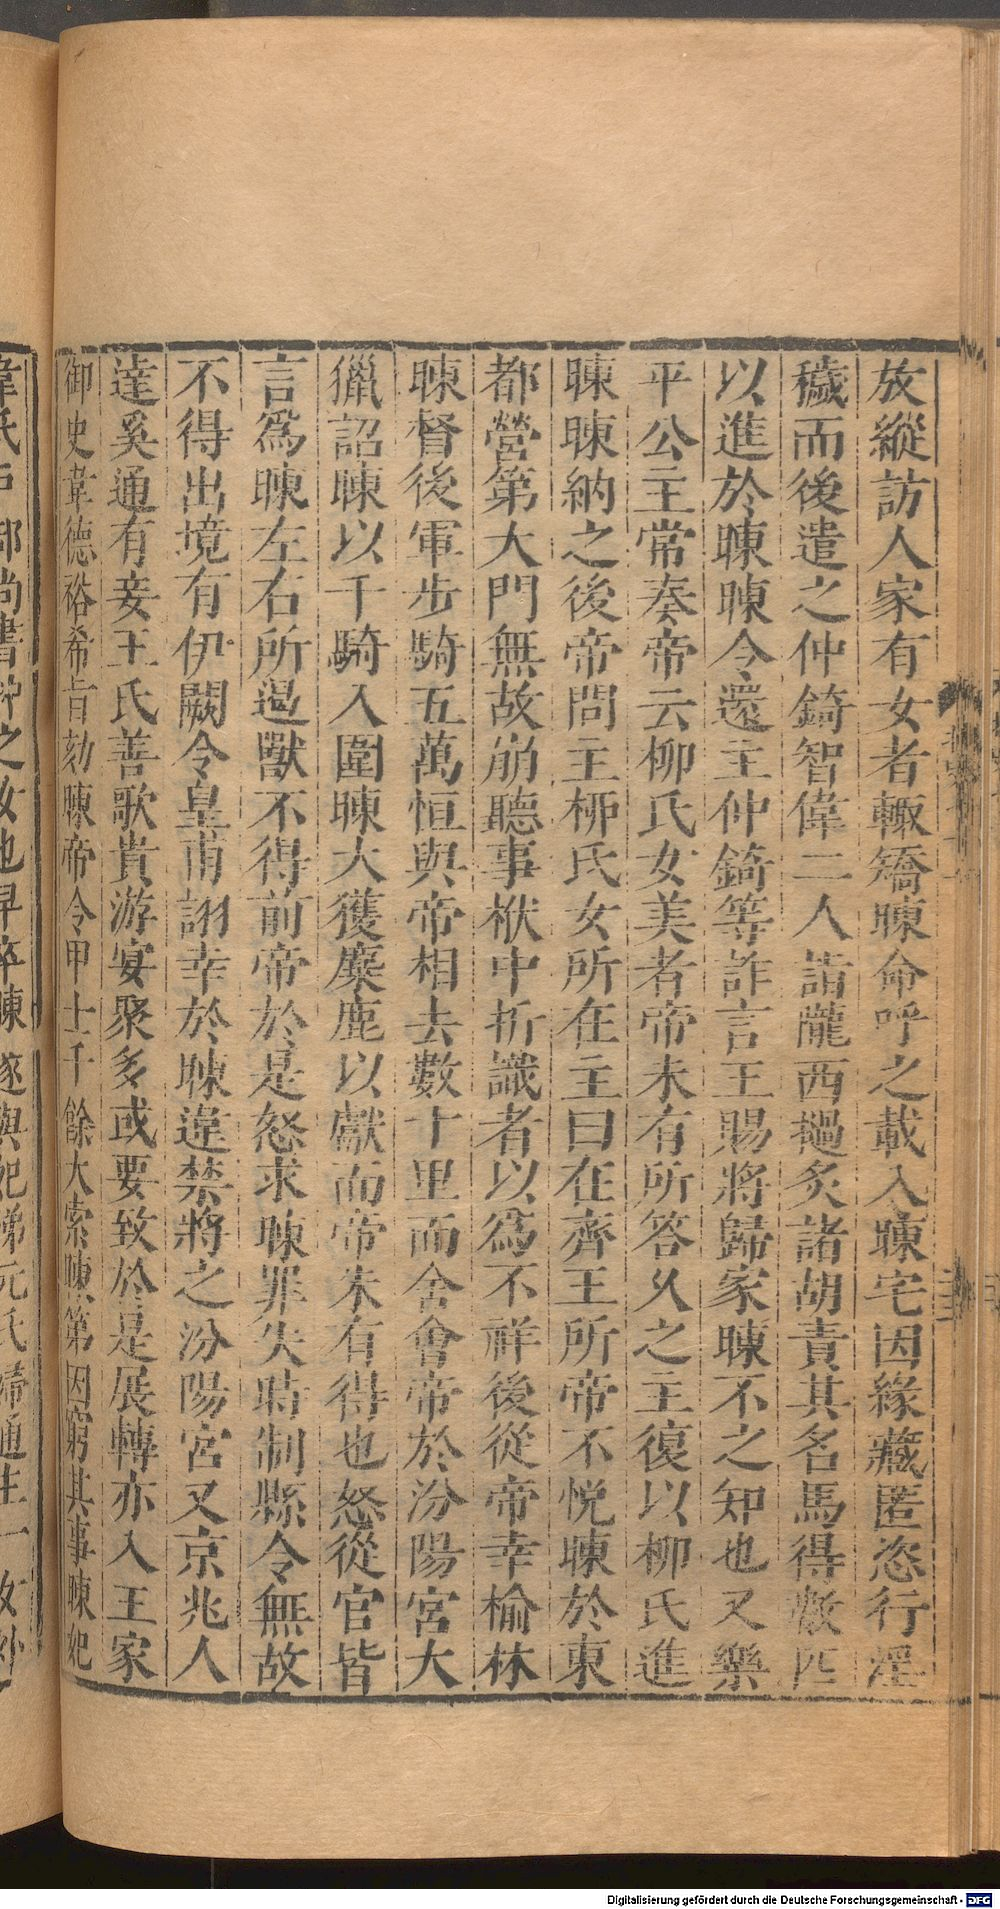 放縱訪人家有女者輙矯暕命呼之載入暕宅因緣藏匿恣行淫
穢而後遣之仲錡智偉二人詣隴西撾炙諸胡責其名馬得數匹
以進於暕暕令還主仲錡等詐言王賜將歸家暕不之知也又樂
平公主常奏帝云柳氏女美者帝未有所答久之主復以柳氏進
暕暕納之後帝問主柳氏女所在主曰在齊王所帝不悅暕於東
都營第大門無故崩聽事栿中折識者以爲不祥後從帝幸榆林
暕督後軍步騎五萬恒與帝相去數十里而舍會帝於汾陽宮大
獵詔暕以千騎入圍暕大獲麋鹿以獻而帝未有得也怒從官皆
言爲暕左右所遏獸不得前帝於是怒求暕罪失時制縣令無故
不得出境有伊闕令皇甫詡幸於暕違禁將之汾陽宮又京兆人
達奚通有妾王氏善歌貴游宴聚多或要致於是展轉亦入王家
御史韋德裕希旨劾暕帝令甲士千餘大索暕第因窮其事暕妃
韋氏戶部尚書沖之女也早卒暕遂與妃姊元氏婦通生一女
Digitalisierung gefördert durch die Deutsche Forschungsgemeinschaft - DFG